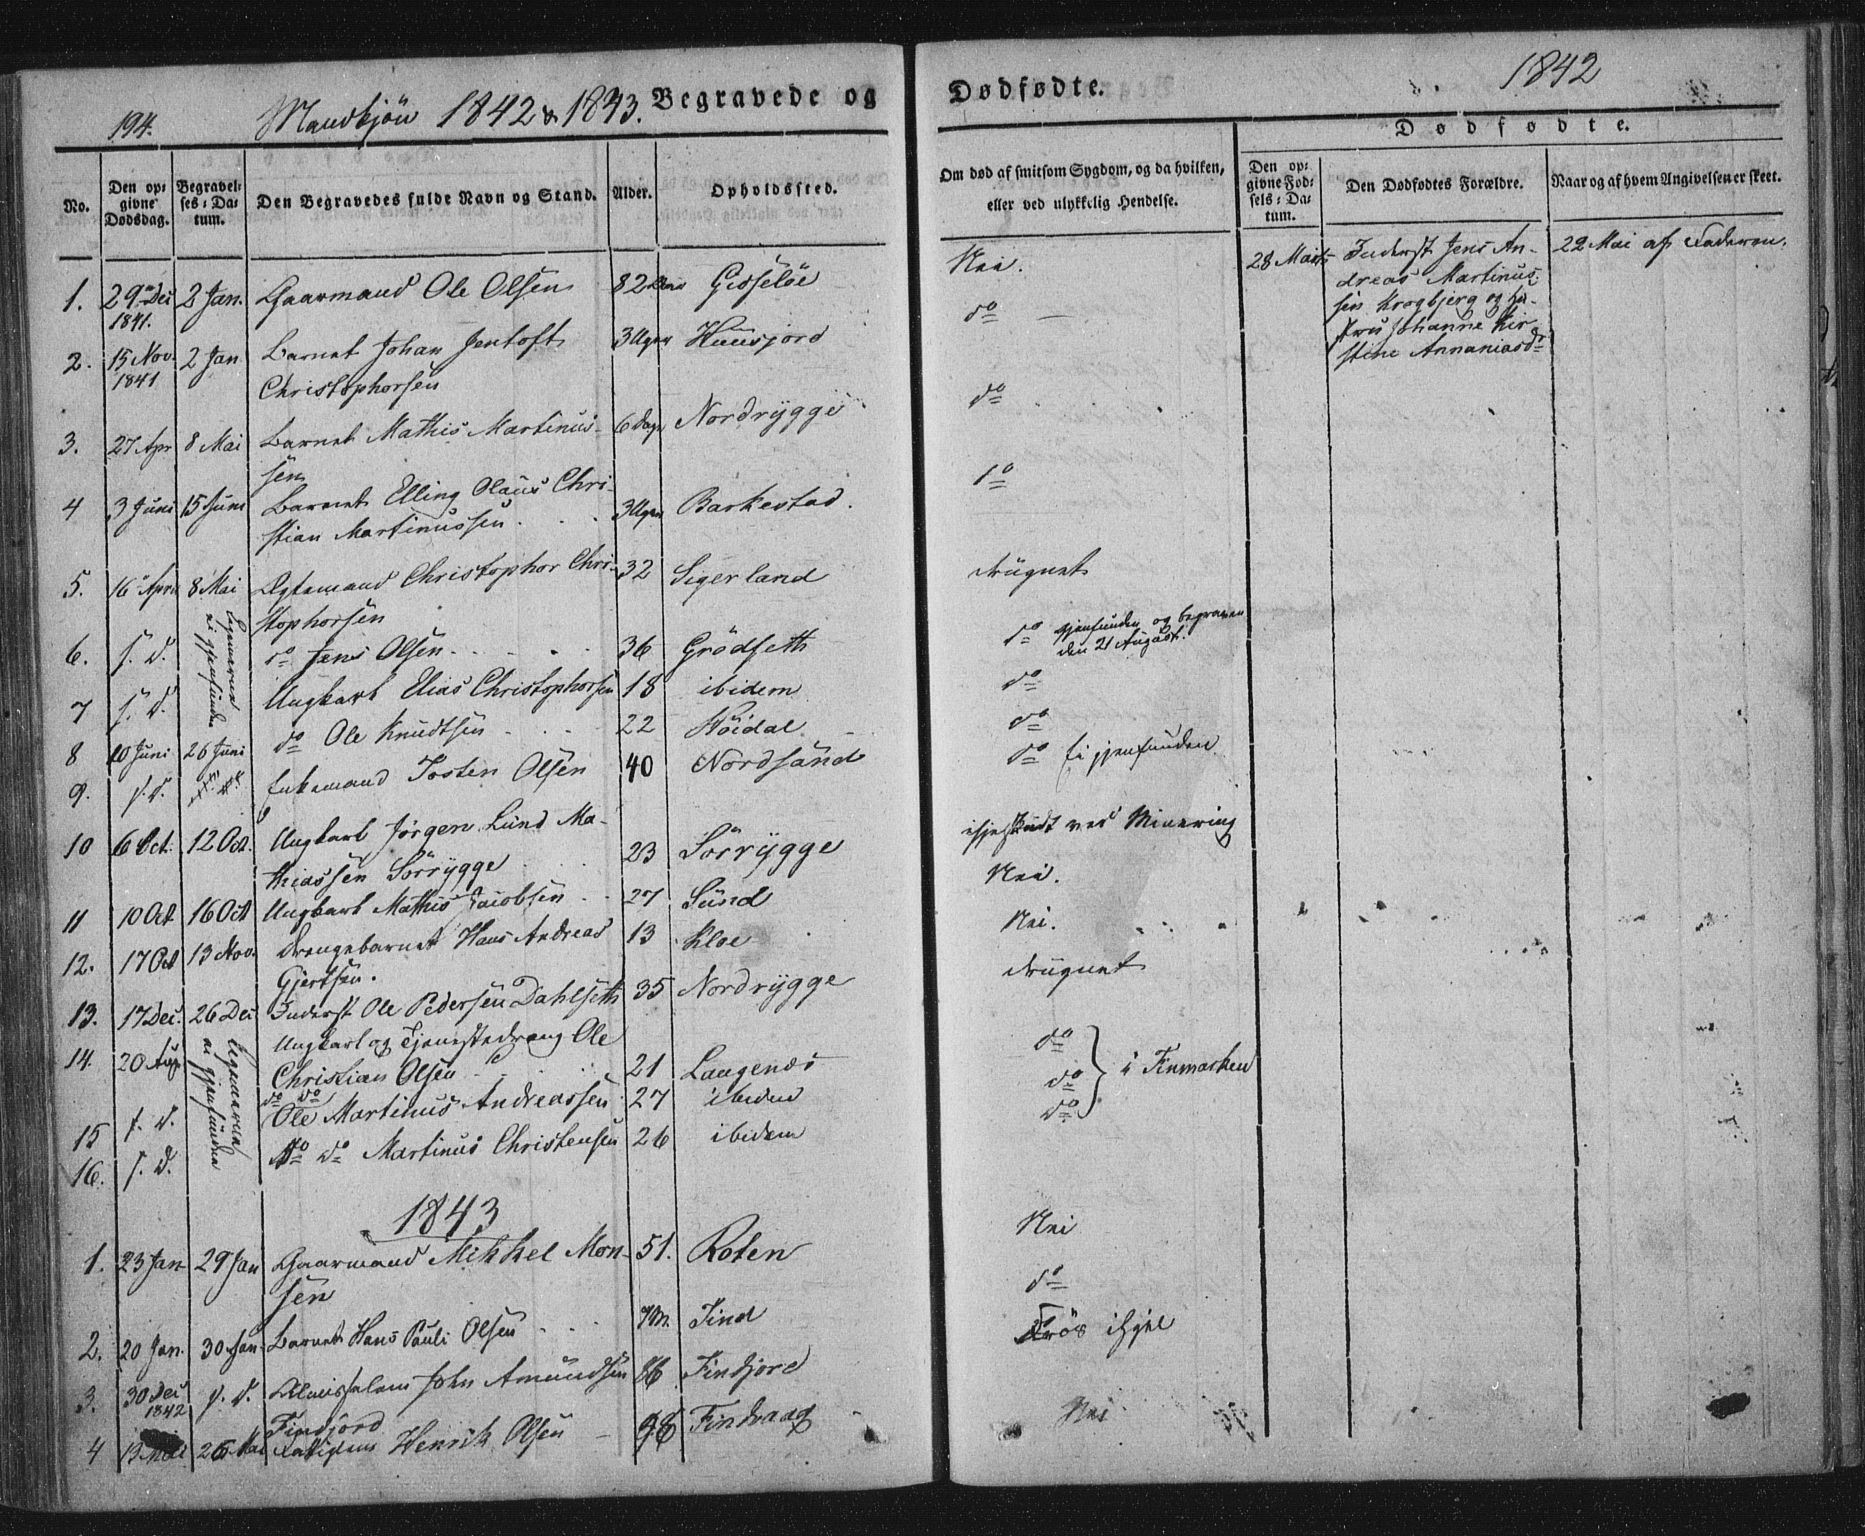 194. Mandkjön 1842 & 1843. Begravede og
No.
Den opgivne Dødsdag.
Begravelses-Datum.
Den Begravedes fulde Navn og Stand.
Alder.
Opholdssted.
1. 29 Dec 1841. 2 Jan. Gaarmand Ole Olsen 82 Gisseløe
2. 15 Nov. 1841 2 Jan Barnet Johan Jentoft 3 Uger
Christophersen
3. 27 Apr 8 Mai Barnet Mathis Martinus- 6 Dage Nordrygge
sen
4 3 Juni 15 Juni Barnet Elling Olaus Chri- 3 Uger Barkestad.
stian Martinussen
5. 16 April 8 Mai Ægtemand Christophor Chri- 32 Sigerland
stophorsen
6. s. d. do Jens Olsen 36 Grödseth
Legemerne ei gjenfunden
7 s. d. Ungkarl Elias Christophorsen 18 ibidem
8 10 Juni 26 Juni do Ole Knudtsen 22 Höidal
9. s. d. Enkemand Tosten Olsen 40 Nordsand
10 6 Oct. 12 Oct. Ungkarl Jörgen Lund Ma- 23 Sörrygge
thiassen Sörrygge
11 10 Oct 16 Oct Ungkarl Mathis Jacobsen 27 Sund
12. 17 Oct 13 Nov. Drengebarnet Hans Andreas 13 Kloe
Gjertsen.
13. 17 Dec. 26 Dec Inderst Ole Pedersen Dahlseth 35 Nordrygge
14. 20 Aug Ungkarl og Tjenestedreng Ole
Christian Olsen 21 Langenes
Legemerne ei gjenfunden
15 s. d. do do Ole Martinus Andreassen 27 ibidem
16. s. d. do do Martinus Christensen 26 ibidem
1843
1. 23 Jan 29 Jan Gaarmand Mikkel Mon- 51. Roten
sen
2. 20 Jan. 30 Jan Barnet Hans Pauli Olsen 7 M. Tind
3. 30 Dec 1842 s. d. John Amundsen 86 Findjord
Findjord
4 13 26 Mai Henrik Olsen 98
Dødfødte. 1842
Om død af smitsom Sygdom, og da hvilken,
eller ved ulykkelig Hendelse.
Dødfødte.
Den opgivne Fødsels-Datum.
Den Dødfødtes Forældre.
Naar og af hvem Angivelsen er skeet.
28 Marts Inderst Jens An- 22 Mai af Faderen.
dreas Martinus-
sen Krogbjerg og Hu-
stru Johanne Kir-
stine Annaniasdr
Nei.
do
do
do
drugnet
do gjenfunden og begraven
den 21 August.
do
do
do Ei gjenfunden
ihjelskudt ved Minering
Nei.
Nei.
drugnet
do
do } i Finmarken
do
Nei
do
Frös ihjel
Nei